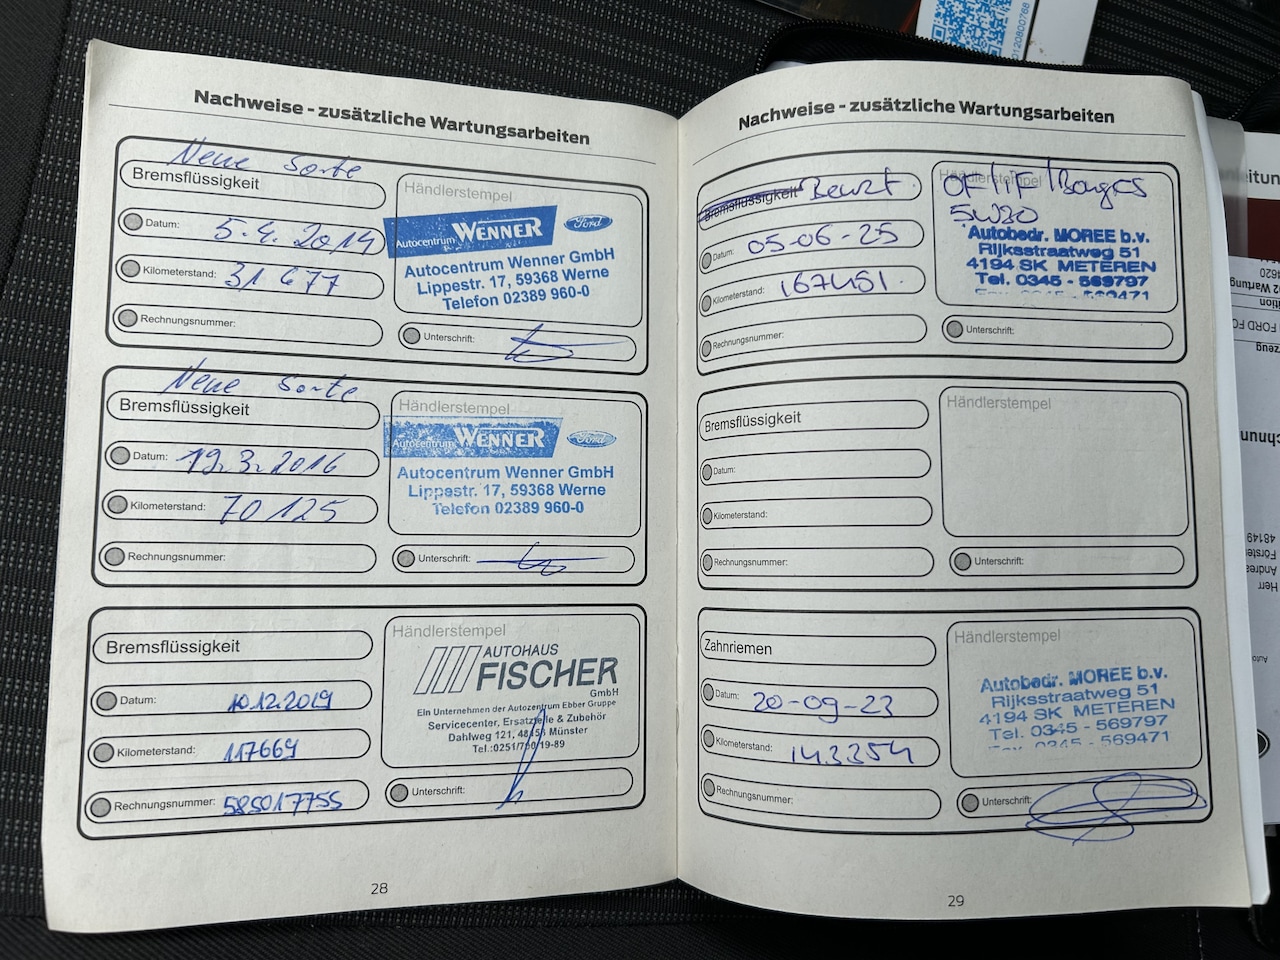 Nachweise - zusätzliche Wartungsarbeiten
Neue Sorte
Bremsflüssigkeit
Datum: 5.4.2014
Kilometerstand: 31 677
Rechnungsnummer:
Händlerstempel
Autocentrum WENNER Ford
Autocentrum Wenner GmbH
Lippestr. 17, 59368 Werne
Telefon 02389 960-0
Unterschrift:
Neue Sorte
Bremsflüssigkeit
Datum: 19.3.2016
Kilometerstand: 70 125
Rechnungsnummer:
Händlerstempel
Autocentrum WENNER Ford
Autocentrum Wenner GmbH
Lippestr. 17, 59368 Werne
Telefon 02389 960-0
Unterschrift:
Bremsflüssigkeit
Datum: 10.12.2019
Kilometerstand: 117669
Rechnungsnummer: 585017755
Händlerstempel
AUTOHAUS
FISCHER
GmbH
Ein Unternehmen der Autozentrum Ebber Gruppe
Servicecenter, Ersatzteile & Zubehör
Dahlweg 121, 48153 Münster
Tel.:0251/790 19-89
Unterschrift:
28
Nachweise - zusätzliche Wartungsarbeiten
Bremsflüssigkeit Beurt.
Datum: 05-06-25
Kilometerstand: 167451.
Rechnungsnummer:
Händlerstempel
5W30
Autobedr. MOREE b.v.
Rijksstraatweg 51
4194 SK METEREN
Tel. 0345 - 569797
Fax 0345 - 569471
Unterschrift:
Bremsflüssigkeit
Datum:
Kilometerstand:
Rechnungsnummer:
Händlerstempel
Unterschrift:
Zahnriemen
Datum: 20-09-23
Kilometerstand: 143354
Rechnungsnummer:
Händlerstempel
Autobedr. MOREE b.v.
Rijksstraatweg 51
4194 SK METEREN
Tel. 0345 - 569797
Fax 0345 - 569471
Unterschrift:
29
0120800768
48149
Herr